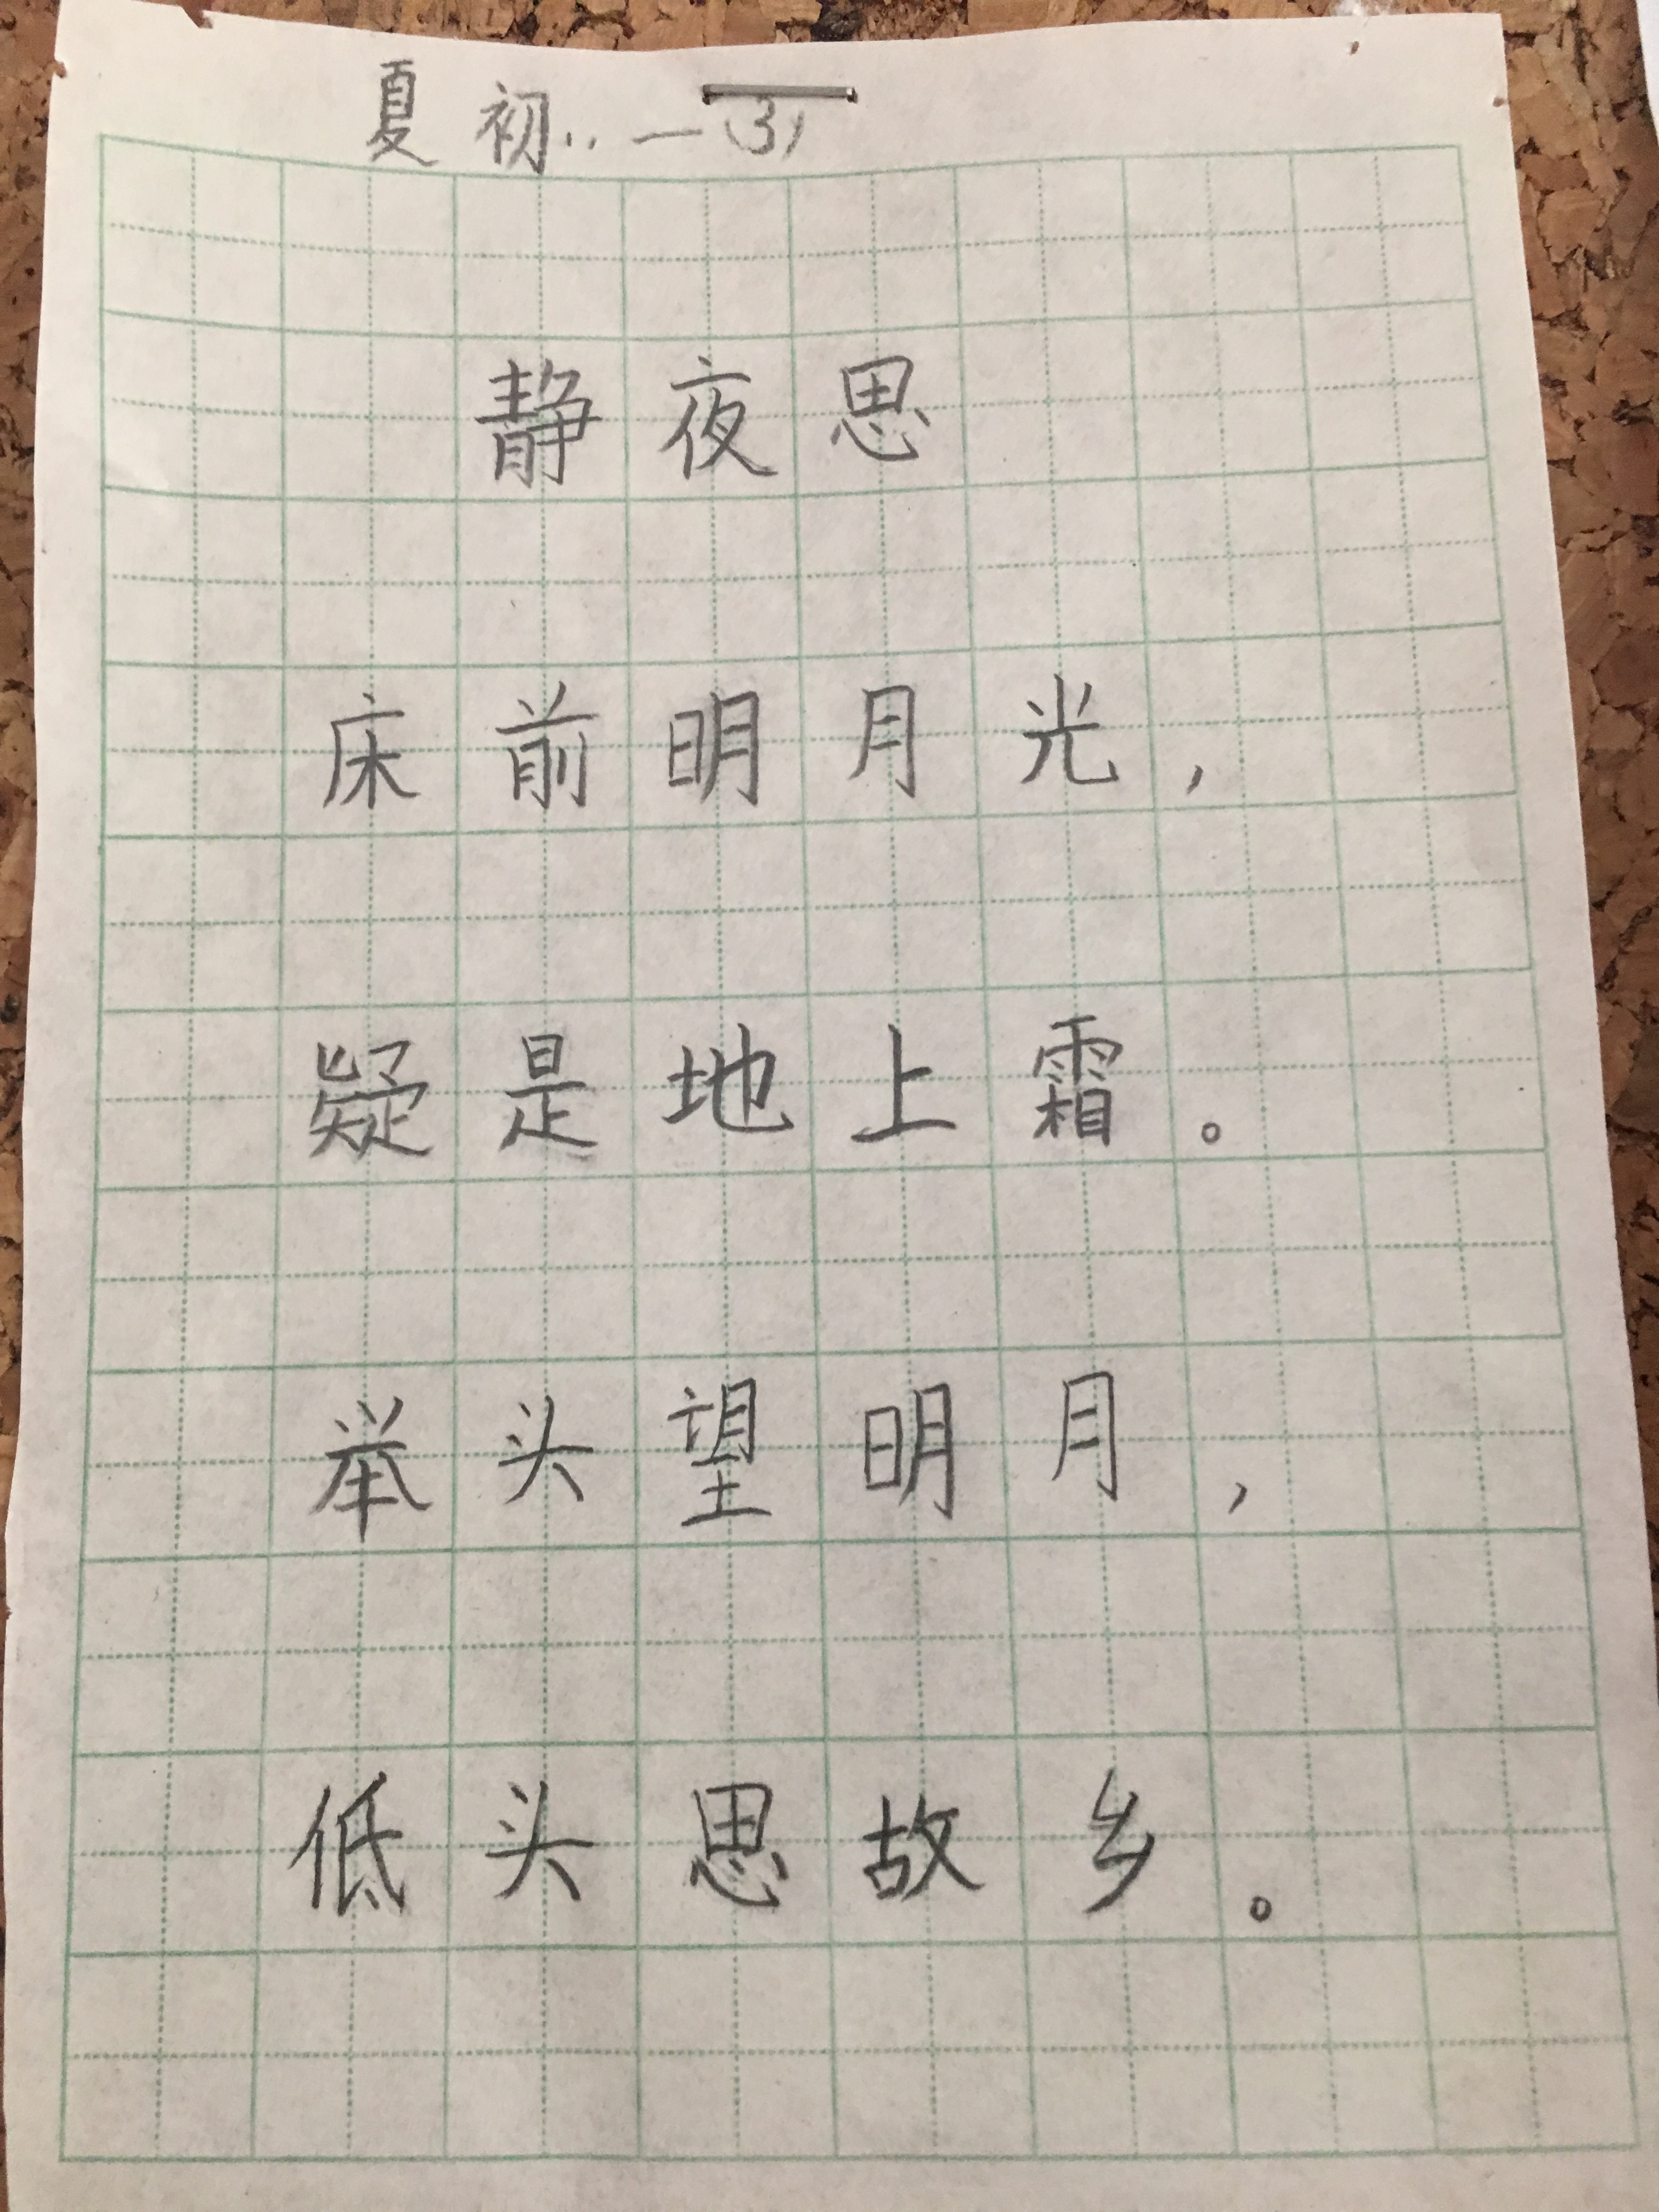 夏初..一(3)
静夜思
床前明月光，
疑是地上霜。
举头望明月，
低头思故乡。